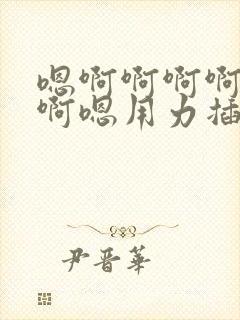 嗯啊啊啊啊
啊嗯用力插
尹晋華